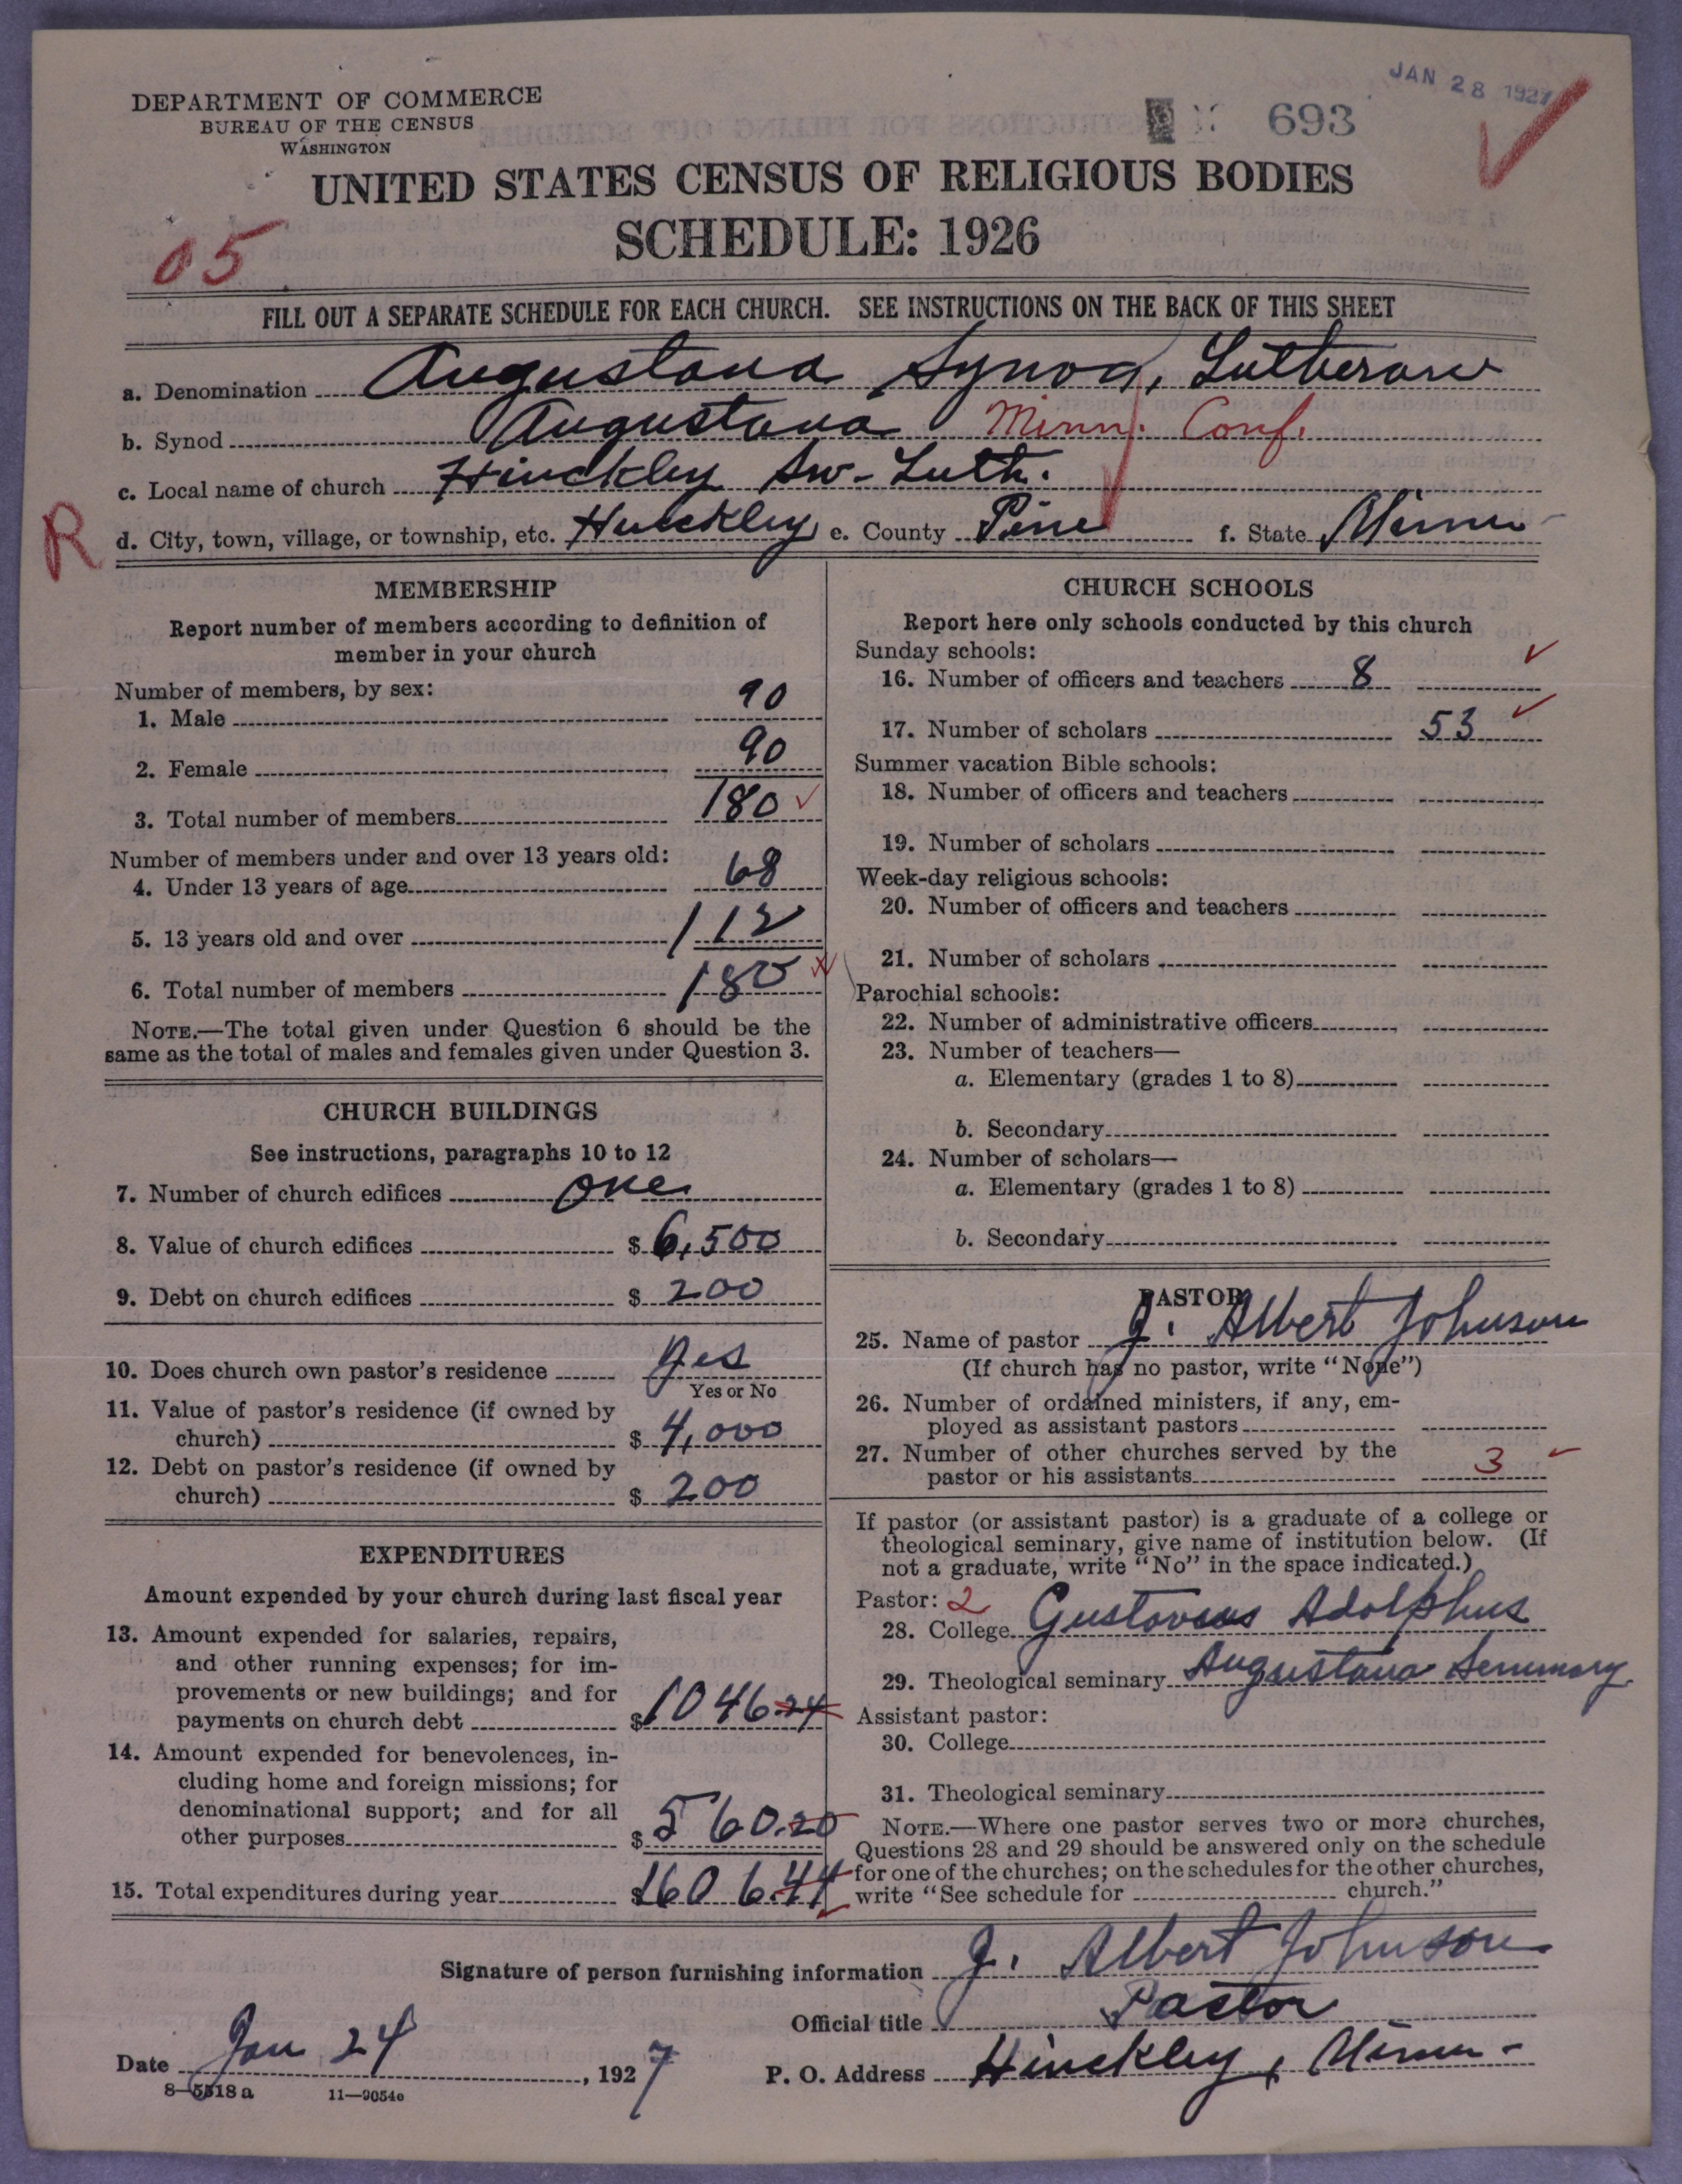 DEPARTMENT OF COMMERCE
BUREAU OF THE CENSUS
WASHINGTON
JAN 28 1927
693
UNITED STATES CENSUS OF RELIGIOUS BODIES
SCHEDULE: 1926
05
FILL OUT A SEPARATE SCHEDULE FOR EACH CHURCH. SEE INSTRUCTIONS ON THE BACK OF THIS SHEET
a. Denomination Augustana Synod, Lutheran
b. Synod Augustana Minn. Conf.
c. Local name of church Hinckley Sw-Luth.
R
d. City, town, village, or township, etc. Hinckley e. County Pine f. State Minn
MEMBERSHIP
Report number of members according to definition of
member in your church
Number of members, by sex:
1. Male 90
2. Female 90
3. Total number of members 180
Number of members under and over 13 years old:
4. Under 13 years of age 68
5. 13 years old and over 112
6. Total number of members 180
NOTE.—The total given under Question 6 should be the
same as the total of males and females given under Question 3.
CHURCH BUILDINGS
See instructions, paragraphs 10 to 12
7. Number of church edifices one
8. Value of church edifices $ 6,500
9. Debt on church edifices $ 200
10. Does church own pastor's residence yes
Yes or No
11. Value of pastor's residence (if owned by
church) $ 4,000
12. Debt on pastor's residence (if owned by
church) $ 200
EXPENDITURES
Amount expended by your church during last fiscal year
13. Amount expended for salaries, repairs,
and other running expenses; for im-
provements or new buildings; and for
payments on church debt $ 1046.24
14. Amount expended for benevolences, in-
cluding home and foreign missions; for
denominational support; and for all
other purposes $ 560.20
15. Total expenditures during year $ 1606.44
CHURCH SCHOOLS
Report here only schools conducted by this church
Sunday schools:
16. Number of officers and teachers 8
17. Number of scholars 53
Summer vacation Bible schools:
18. Number of officers and teachers
19. Number of scholars
Week-day religious schools:
20. Number of officers and teachers
21. Number of scholars
Parochial schools:
22. Number of administrative officers
23. Number of teachers—
a. Elementary (grades 1 to 8)
b. Secondary
24. Number of scholars—
a. Elementary (grades 1 to 8)
b. Secondary
PASTOR
25. Name of pastor J. Albert Johnson
(If church has no pastor, write "None")
26. Number of ordained ministers, if any, em-
ployed as assistant pastors
27. Number of other churches served by the
pastor or his assistants 3
If pastor (or assistant pastor) is a graduate of a college or
theological seminary, give name of institution below. (If
not a graduate, write "No" in the space indicated.)
Pastor: 2
28. College Gustavus Adolphus
29. Theological seminary Augustana Seminary
Assistant pastor:
30. College
31. Theological seminary
NOTE.—Where one pastor serves two or more churches,
Questions 28 and 29 should be answered only on the schedule
for one of the churches; on the schedules for the other churches,
write "See schedule for church."
Signature of person furnishing information J. Albert Johnson
Official title Pastor
Date Jan 24, 1927
P. O. Address Hinckley, Minn-
8—5518a 11—9054e